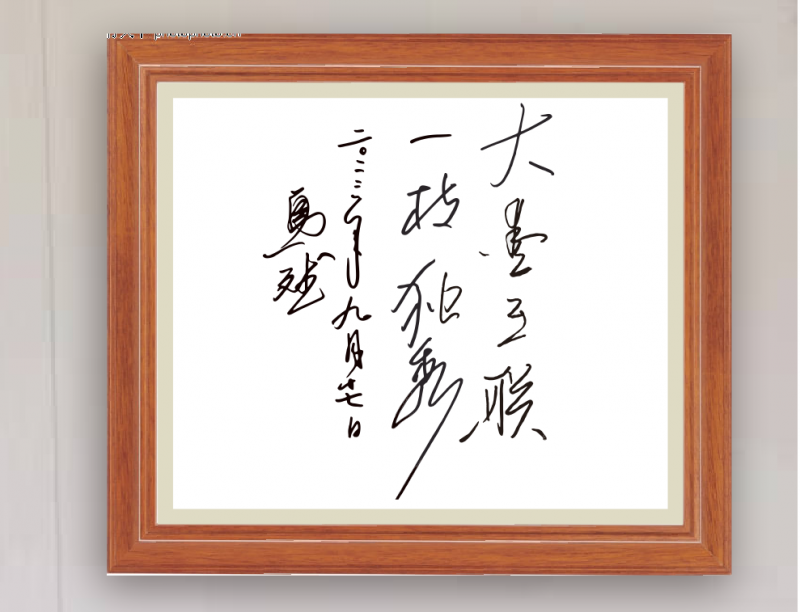 大墨互联
一枝独秀
二〇二二年九月廿七日